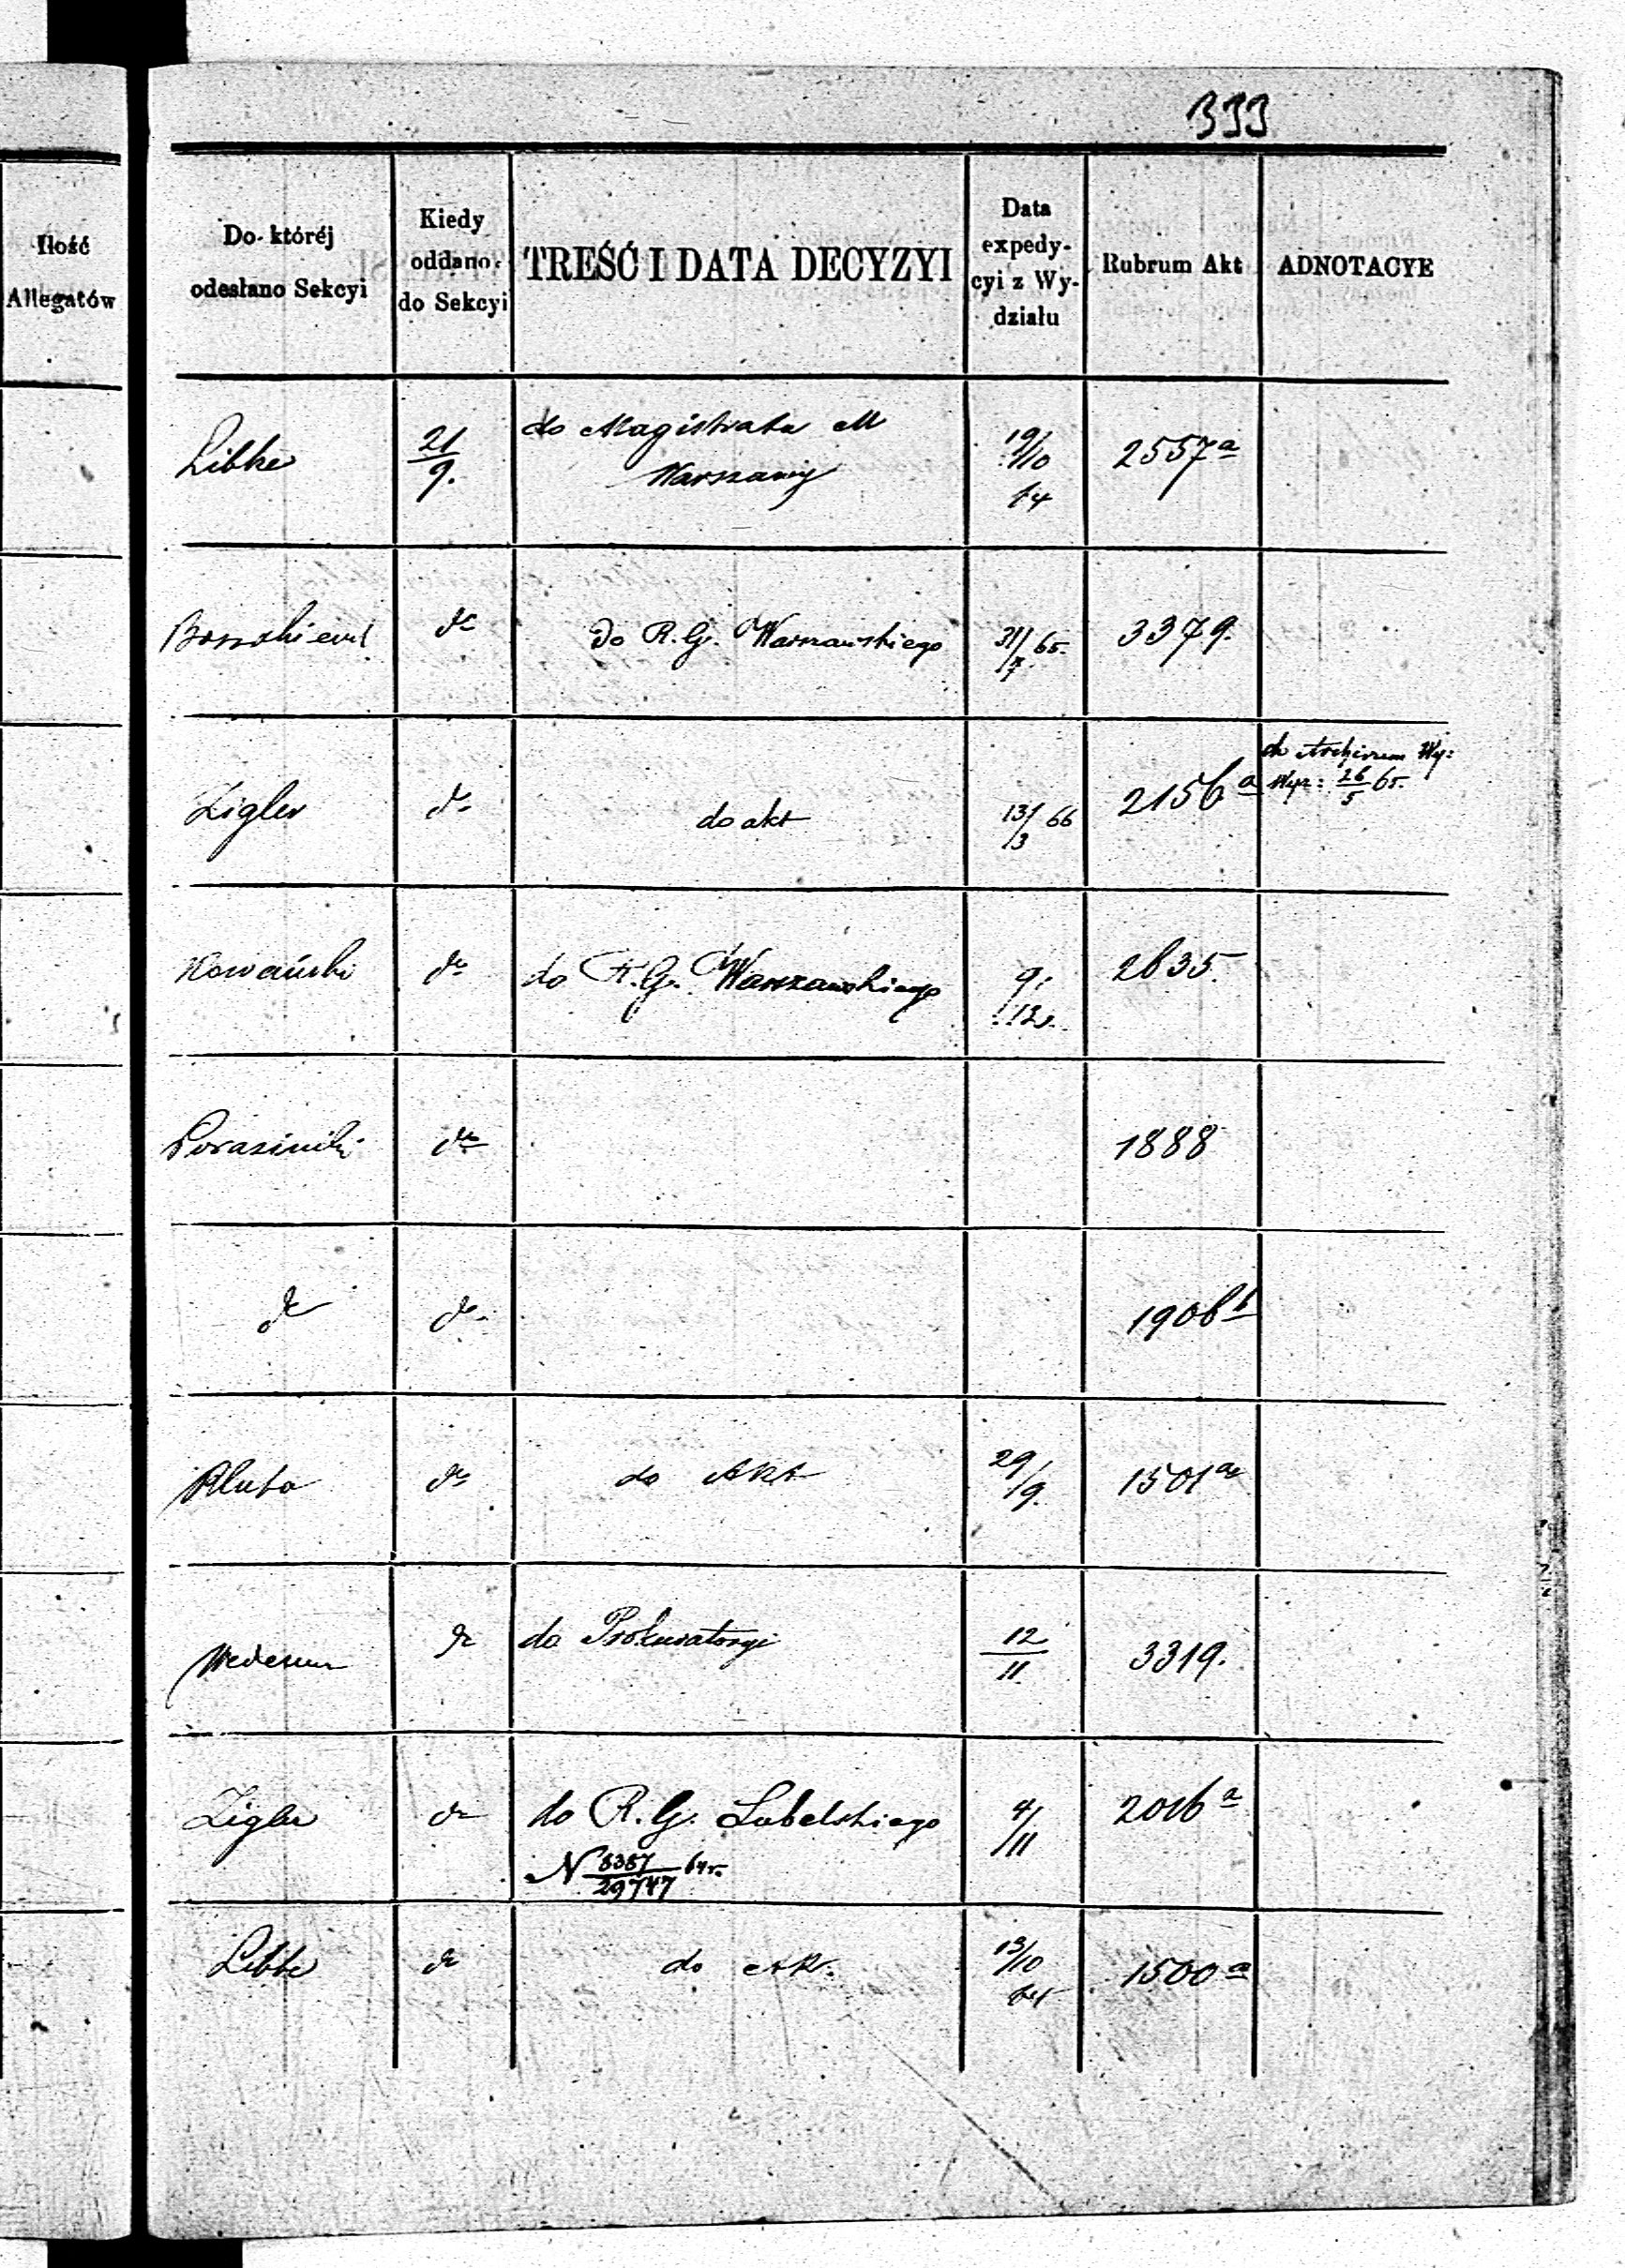 333
Ilość
Allegatów
Do któréj
odesłano Sekcyi
Kiedy
oddano
do Sekcyi
TREŚĆ I DATA DECYZYI
Data
expedy-
cyi z Wy-
działu
Rubrum Akt
ADNOTACYE
Libke
21/9.
do Magistratu M
Warszawy
19/10
64
2557 a
do
do R. G. Warszawskiego
31/ 65.
3379.
Zigler
do
do akt
13/3 66
2156 a
do Archiwum Wy:
26/5 65.
do
do R. G. Warszawskiego
9/12
2635.
do
1888
do
do
1906 b
Pluta
do
do Akt
29/9.
1501 a
do
do Prokuratoryi
12/11
3319.
Zigler
do
do R. G. Lubelskiego
N 8387/29747 64 r.
4/11
2016 a
Libke
do
do Akt.
13/10
64
1500 a